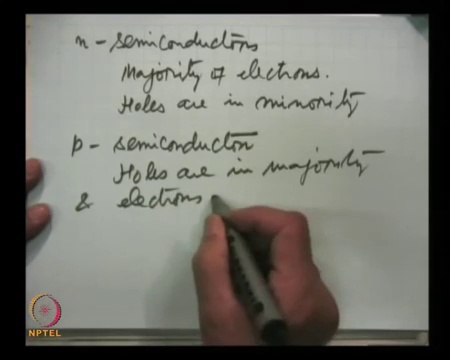 n - semiconductors
Majority of electrons.
Holes are in minority
p - semiconductor
Holes are in majority
& electrons
NPTEL